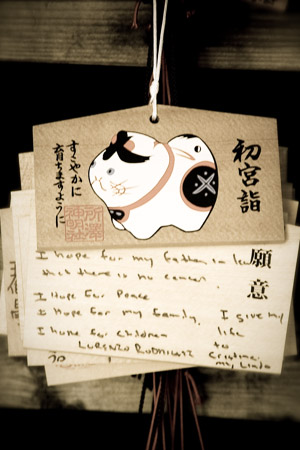 初宮詣
すこやかに
育ちますように
願意
I hope for my father in law
that there is no cancer.
I Hope For Peace
I Hope for my family.
I hope for children
LORENZO RODRIGUEZ
I give my
life
to
my Linda